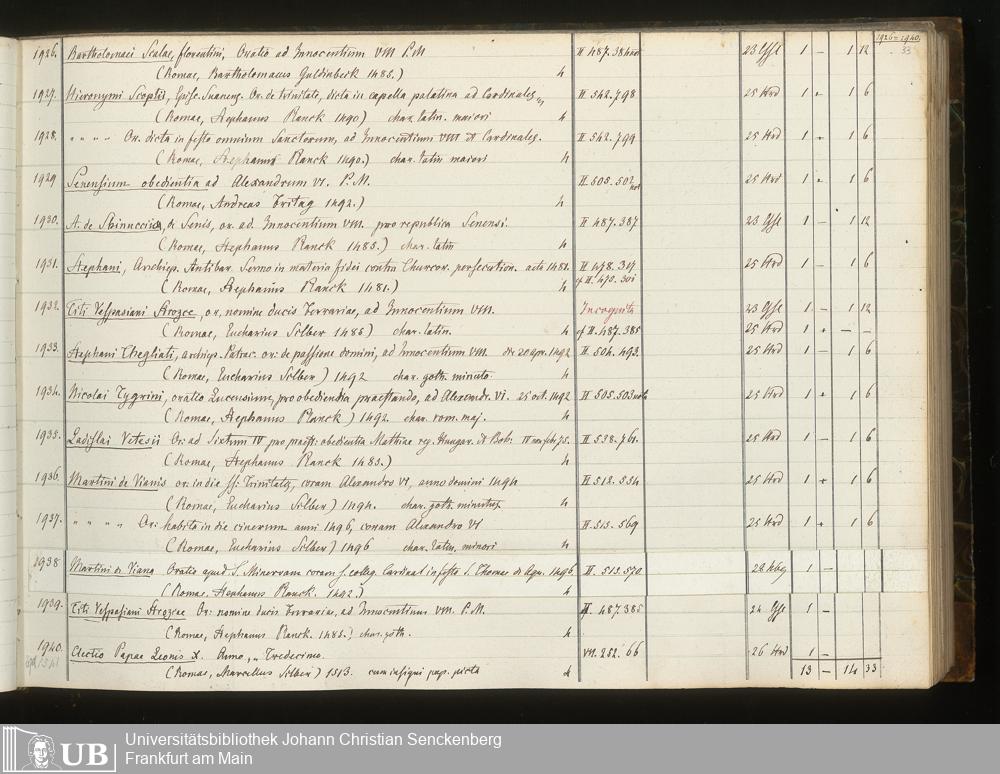 1926–1940.
33
1926. Bartholomaei Scalae, florentini, Oratio ad Innocentium VIII P.M. II 487.384 23 1 – 1 12
(Romae, Bartholomaeus Guldinbeck 1485.) 4
1927. Hieronymi Scoptii, Episc. Suanens. Or. de trinitate, dicta in capella palatina ad Cardinales II. 542.798 25 1 1 6
(Romae, Stephanus Planck 1490) char. latin. maiori 4
1928. " " " " Or. dicta in festo omnium Sanctorum, ad Innocentium VIII et Cardinales. II. 542.799 25 1 1 6
(Romae, Stephanus Planck 1490.) char. latin maiori 4
1929 Senensium obedientia ad Alexandrum VI. P.M. II. 505.502 25 1 1 6
(Romae, Andreas Fritag 1492.) 4
1930. de Senis, or. ad. Innocentium VIII. pro republica Senensi. II 487.387 23 1 – 1 12
(Romae, Stephanus Planck 1485.) char. latin 4
1931. Stephani, Archiep. Antibar. Sermo in materia fidei contra Thurcor. persecution. acto 1481. 25 1 – 1 6
(Romae, Stephanus Planck 1481.) 4 cf II. 470. 301
1932. Titi Vespasiani Strozae, or. nomine ducis Ferrariae, ad Innocentium VIII. Incognita 23 1 – 1 12
(Romae, Eucharius Silber 1485) char. latin. 4 cf II. 487.385 25 1 – –
1933. Stephani Thegliati, archiep. Patrac. or: de passione domini, ad Innocentium VIII. die 20 apr. 1492 II. 504. 493. 25 1 – 1 6
(Romae, Eucharius Silber) 1492 char. goth. minuto. 4
1934. Nicolai Tygrini, oratio Lucensium, pro obediendia praestando, ad Alexandr. VI. 25 oct. 1492 II 505.503 25 1 1 6
(Romae, Stephanus Planck) 1492. char. rom. maj. 4
1935. Ladislai Vetesii Or: ad Sixtum IV pro praest: obedientia Mathiae reg. Hungar. et Boh: II 538.761. 25 1 – 1 6
(Romae, Stephanus Planck 1485.) 4
1936. Martini de Vianis or. in die ss. Trinitatis, coram Alexandro VI, anno domini 1494 II 512.554 25 1 1 6
(Romae, Eucharius Silber) 1494. char. goth. minutus 4
1937. " " " " Or: habita in die cinerum anni 1496, coram Alexandro VI II. 513. 569 25 1 1 6
(Romae, Eucharius Silber) 1496 char. latin. minori 4
1938 Martini de Viana Oratio apud S. Minervam coram s. colleg. Cardinal in festo S. Thomae de Aqu. 1496 II. 513.570 22 1 –
(Romae, Stephanus Planck. 1492.) 4
1939. Titi Vespasiani Strozae Or: nomine ducis Ferrariae, ad Innocentium VIII. P.M. II. 487.385 24 1 –
(Romae, Stephanus Planck. 1485.) char. goth. 4
1940. Electio Papae Leonis X. Anno, Tredecimo. VIII. 252. 66 26 1 –
(Romae, Marcellus Silber) 1513. cum insigni pap. picta 4 13 – 14 33
UB
Universitätsbibliothek Johann Christian Senckenberg
Frankfurt am Main